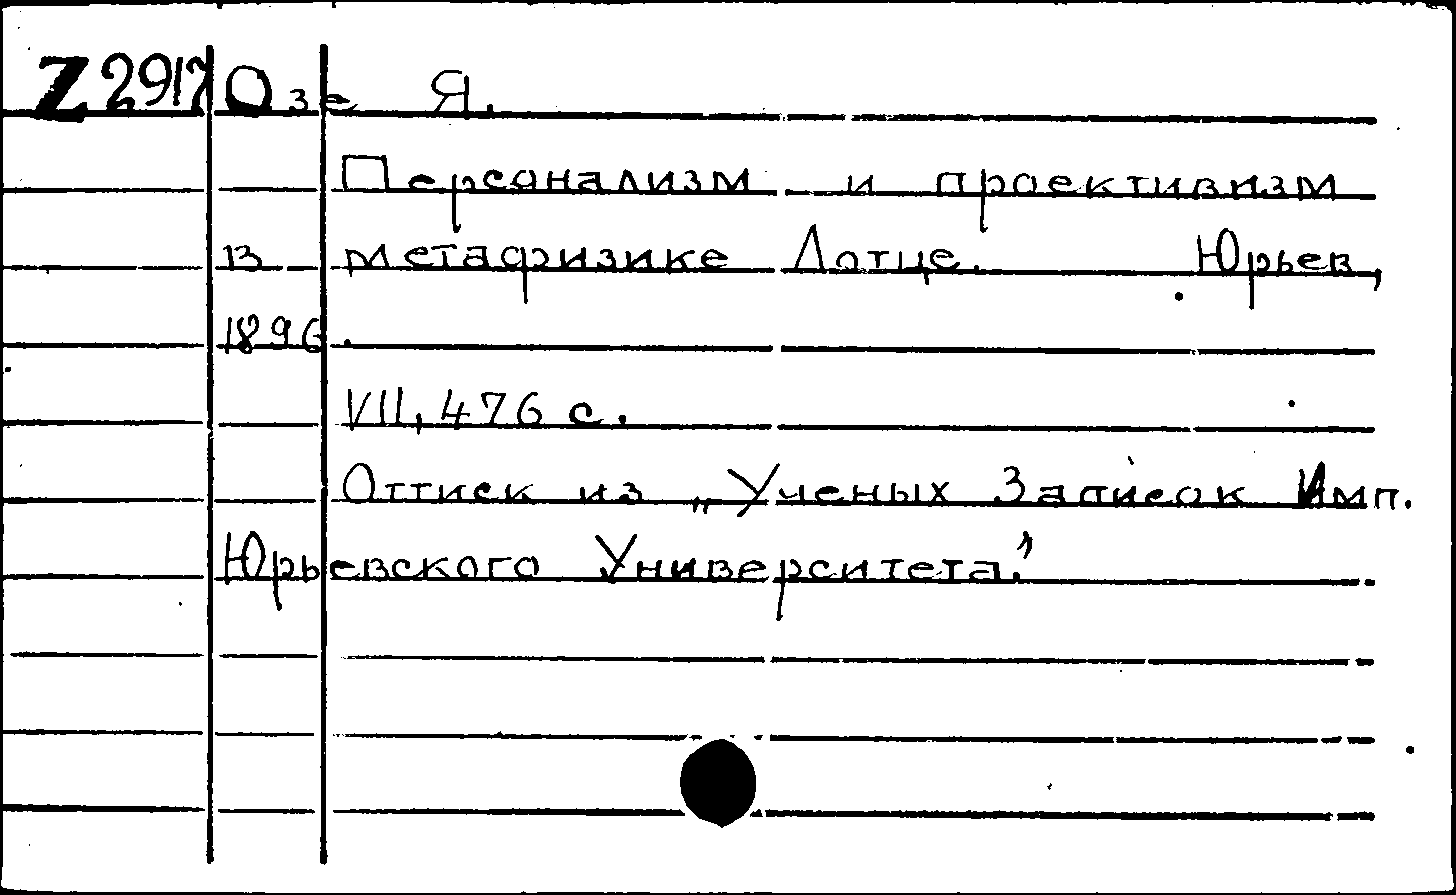 Z 2917 Озе Я.
Персонализм и проективизм
в метафизике Лотце. Юрьев,
1896.
VII, 476 с.
Оттиск из „Ученых Записок Имп.
Юрьевского Университета."